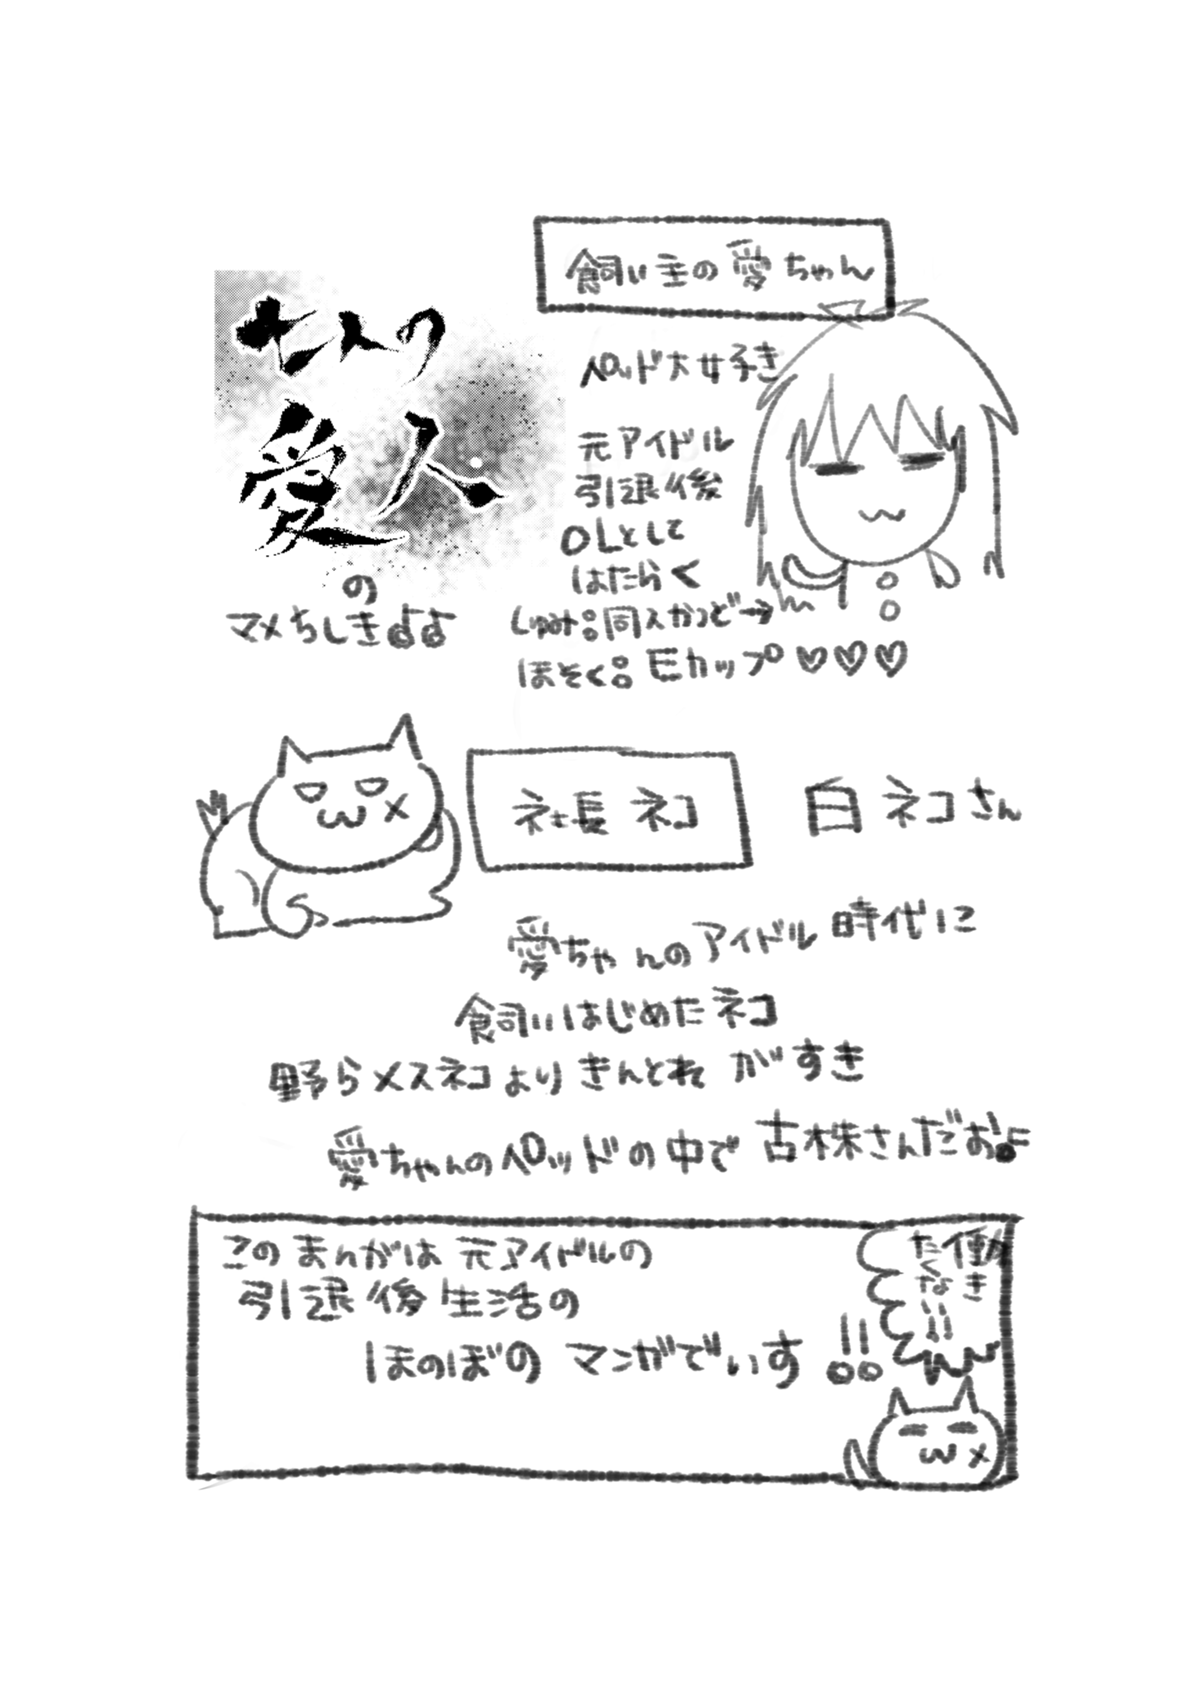 七人の
愛人
の
マメちしき♪♪
飼い主の愛ちゃん
ペッド大好き
元アイドル
引退後
OLとして
はたらく
しゅみ:同人かつどー
ほそく:Eカップ♡♡♡
社長ネコ
白ネコさん
愛ちゃんのアイドル時代に
飼いはじめたネコ
野らメスネコよりきんとれがすき
愛ちゃんのペッドの中で古株さんだお♪
このまんがは元アイドルの
引退後生活の
ほのぼのマンガでいす!!
働き
たくなき!!